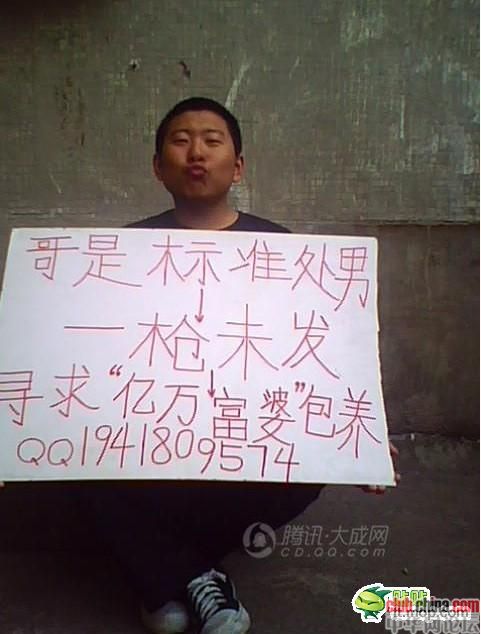 哥是标准处男
↓
一枪未发
↓
寻求“亿万富婆”包养
QQ1941809574
腾讯·大成网
CD.QQ.COM
club.china.com
中华网论坛